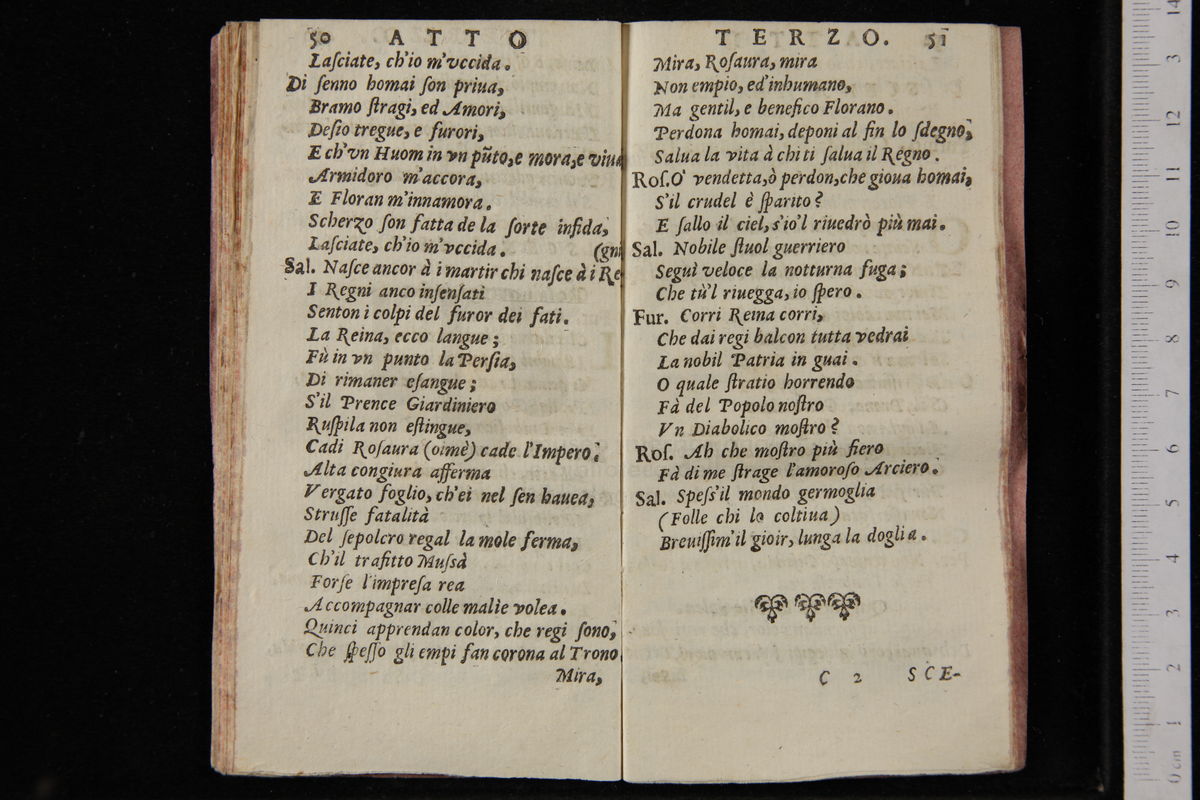 50 ATTO
Laſciate, ch'io m'vccida.
Di ſenno homai ſon priua,
Bramo ſtragi, ed Amori,
Deſio tregue, e furori,
E ch'vn Huom in vn pũto, e mora, e viua
Armidoro m'accora,
E Floran m'innamora.
Scherzo ſon fatta de la ſorte infida,
Laſciate, ch'io m'vccida. (gni
Sal. Naſce ancor à i martir chi naſce à i Re
I Regni anco inſenſati
Senton i colpi del furor dei fati.
La Reina, ecco langue;
Fù in vn punto la Perſia,
Di rimaner eſangue;
S'il Prence Giardiniero
Ruſpila non eſtingue,
Cadi Roſaura (oimè) cade l'Impero.
Alta congiura afferma
Vergato foglio, ch'ei nel ſen hauea,
Struſſe fatalità
Del ſepolcro regal la mole ferma,
Ch'il trafitto Muſsà
Forſe l'impreſa rea
Accompagnar colle malìe volea.
Quinci apprendan color, che regi ſono,
Che ſpeſſo gli empi fan corona al Trono.
Mira,
TERZO. 51
Mira, Roſaura, mira
Non empio, ed'inhumano,
Ma gentil, e benefico Florano.
Perdona homai, deponi al fin lo ſdegno,
Salua la vita à chi ti ſalua il Regno.
Roſ. O' vendetta, ò perdon, che gioua homai,
S'il crudel è ſparito?
E ſallo il ciel, s'io'l riuedrò più mai.
Sal. Nobile ſtuol guerriero
Seguì veloce la notturna fuga;
Che tù'l riuegga, io ſpero.
Fur. Corri Reina corri,
Che dai regi balcon tutta vedrai
La nobil Patria in guai.
O quale ſtratio horrendo
Fà del Popolo noſtro
Vn Diabolico moſtro?
Roſ. Ah che moſtro più fiero
Fà di me ſtrage l'amoroſo Arciero.
Sal. Speſs'il mondo germoglia
(Folle chi lo coltiua)
Breuiſſim'il gioir, lunga la doglia.
C 2 SCE-
0 cm 1 2 3 4 5 6 7 8 9 10 11 12 13 14